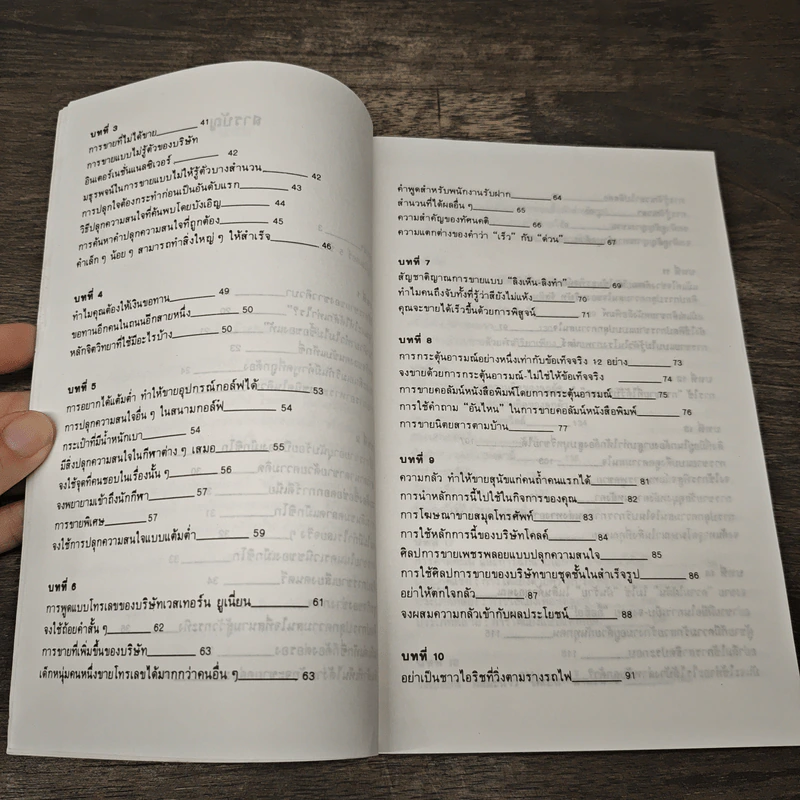 บทที่ 3
การขายที่ไม่ได้ขาย 41
การขายแบบไม่รู้ตัวของบริษัท
อินเตอร์เนชั่นแนลซิเวอร์ 42
มธุรพจน์ในการขายแบบไม่ให้รู้ตัวบางสำนวน 42
การปลุกใจต้องกระทำก่อนเป็นอันดับแรก 43
วิธีปลุกความสนใจที่ค้นพบโดยบังเอิญ 44
การค้นหาคำปลุกความสนใจที่ถูกต้อง 45
คำเล็ก ๆ น้อย ๆ สามารถทำสิ่งใหญ่ ๆ ให้สำเร็จ 46
บทที่ 4
ทำไมคุณต้องให้เงินขอทาน 49
ขอทานอีกคนในถนนอีกสายหนึ่ง 50
หลักจิตวิทยาที่ใช้มีอะไรบ้าง 50
บทที่ 5
การอยากได้แต้มต่ำ ทำให้ขายอุปกรณ์กอล์ฟได้ 53
การปลุกความสนใจอื่น ๆ ในสนามกอล์ฟ 54
กระเป๋าที่มีน้ำหนักเบา 54
มีสิ่งปลุกความสนใจในกีฬาต่าง ๆ เสมอ 55
จงใช้จุดที่คนชอบในเรื่องนั้น ๆ 56
จงพยายามเข้าถึงนักกีฬา 57
การขายพิเศษ 57
จงใช้การปลุกความสนใจแบบแต้มต่ำ 59
บทที่ 6
การพูดแบบโทรเลขของบริษัทเวสเทอร์น ยูเนี่ยน 61
จงใช้ถ้อยคำสั้น ๆ 62
การขายที่เพิ่มขึ้นของบริษัท 63
เด็กหนุ่มคนหนึ่งขายโทรเลขได้มากกว่าคนอื่น ๆ 63
คำพูดสำหรับพนักงานรับฝาก 64
สำนวนที่ได้ผลอื่น ๆ 65
ความสำคัญของทัศนคติ 66
ความแตกต่างของคำว่า "เร็ว" กับ "ด่วน" 67
บทที่ 7
สัญชาติญาณการขายแบบ "ลิงเห็น-ลิงทำ" 69
ทำไมคนถึงจับทั้งที่รู้ว่าสียังไม่แห้ง 70
คุณจะขายได้เร็วขึ้นด้วยการพิสูจน์ 71
บทที่ 8
การกระตุ้นอารมณ์อย่างหนึ่งเท่ากับข้อเท็จจริง 12 อย่าง 73
จงขายด้วยการกระตุ้นอารมณ์-ไม่ใช่ให้ข้อเท็จจริง 74
การขายคอลัมน์หนังสือพิมพ์โดยการกระตุ้นอารมณ์ 75
การใช้คำถาม "อันไหน" ในการขายคอลัมน์หนังสือพิมพ์ 76
การขายนิตยสารตามบ้าน 77
บทที่ 9
ความกลัว ทำให้ขายสุนัขแก่คนถ้ำคนแรกได้ 81
การนำหลักการนี้ไปใช้ในกิจการของคุณ 82
การโฆษณาขายสมุดโทรศัพท์ 83
การใช้หลักการนี้ของบริษัทโคลค์ 84
ศิลปการขายเพชรพลอยแบบปลุกความสนใจ 85
การใช้ศิลปการขายของบริษัทขายชุดชั้นในสำเร็จรูป 86
อย่าให้ตกใจกลัว 87
จงผสมความกลัวเข้ากับผลประโยชน์ 88
บทที่ 10
อย่าเป็นชาวไอริชที่วิ่งตามรางรถไฟ 91